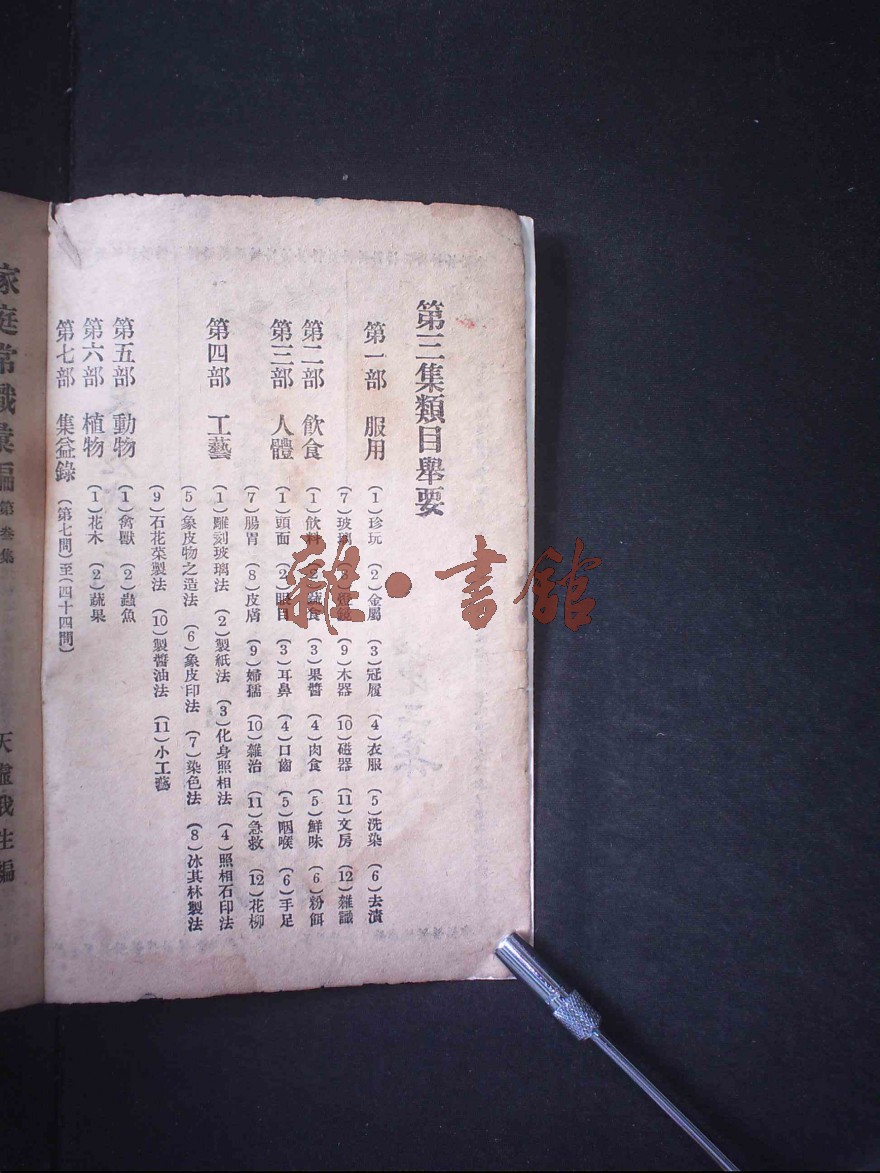 第三集類目舉要
第一部　服用　(1)珍玩　(2)金屬　(3)冠履　(4)衣服　(5)洗染　(6)去漬
(7)玻璃　(8)燈鏡　(9)木器　(10)磁器　(11)文房　(12)雜識
第二部　飲食　(1)飲料　(2)蔬食　(3)果醬　(4)肉食　(5)鮮味　(6)粉餌
第三部　人體　(1)頭面　(2)眼目　(3)耳鼻　(4)口齒　(5)咽喉　(6)手足
(7)腸胃　(8)皮膚　(9)婦孺　(10)雜治　(11)急救　(12)花柳
第四部　工藝　(1)雕刻玻璃法　(2)製紙法　(3)化身照相法　(4)照相石印法
(5)象皮物之造法　(6)象皮印法　(7)染色法　(8)冰其林製法
(9)石花菜製法　(10)製醬油法　(11)小工藝
第五部　動物　(1)禽獸　(2)蟲魚
第六部　植物　(1)花木　(2)蔬果
第七部　集益錄　(第七問)至(四十四問)
家庭常識彙編　第叁集　天虛我生編
雜·書館